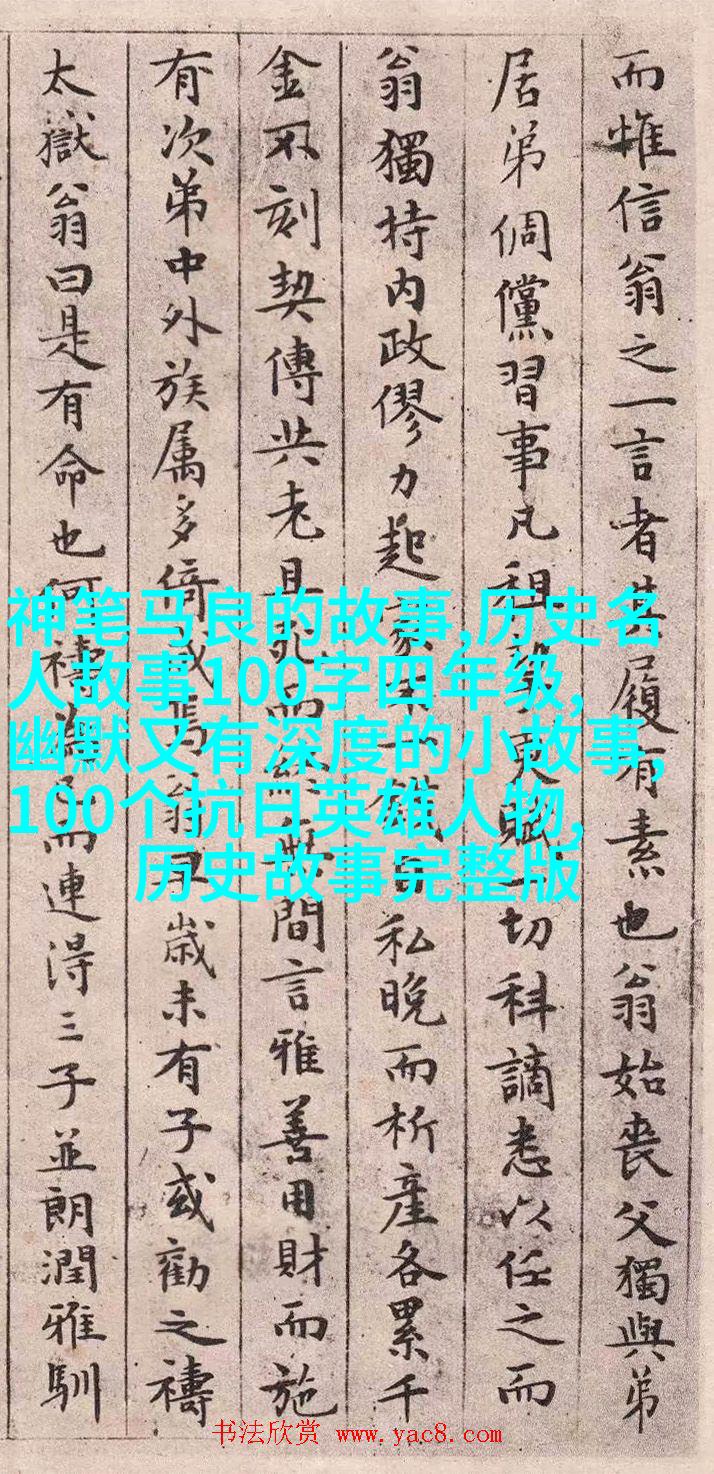 而惟信翁之一言者其履有素也翁始喪父獨與弟
居弟倜儻習事凡租更賦一切科謫悉以任之而
翁獨持内政僇力起家私晚而析產各累千
金不刻契傳共老且死而無間言雅善用財而施
有次弟中外族属多倚成焉翁歲未有子或勸之禱
太嶽翁曰是有命也何禱為而連得三子並朗潤雅馴
神笔马良的故事,历史名
人故事100字四年级,
幽默又有深度的小故事,
100个抗日英雄人物,
历史故事完整版
书法欣赏 www.yac8.com